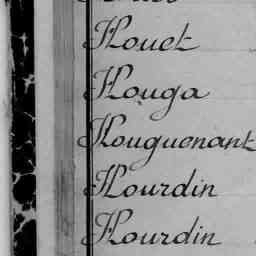 Houet
Houga
Houguenant
Hourdin
Hourdin